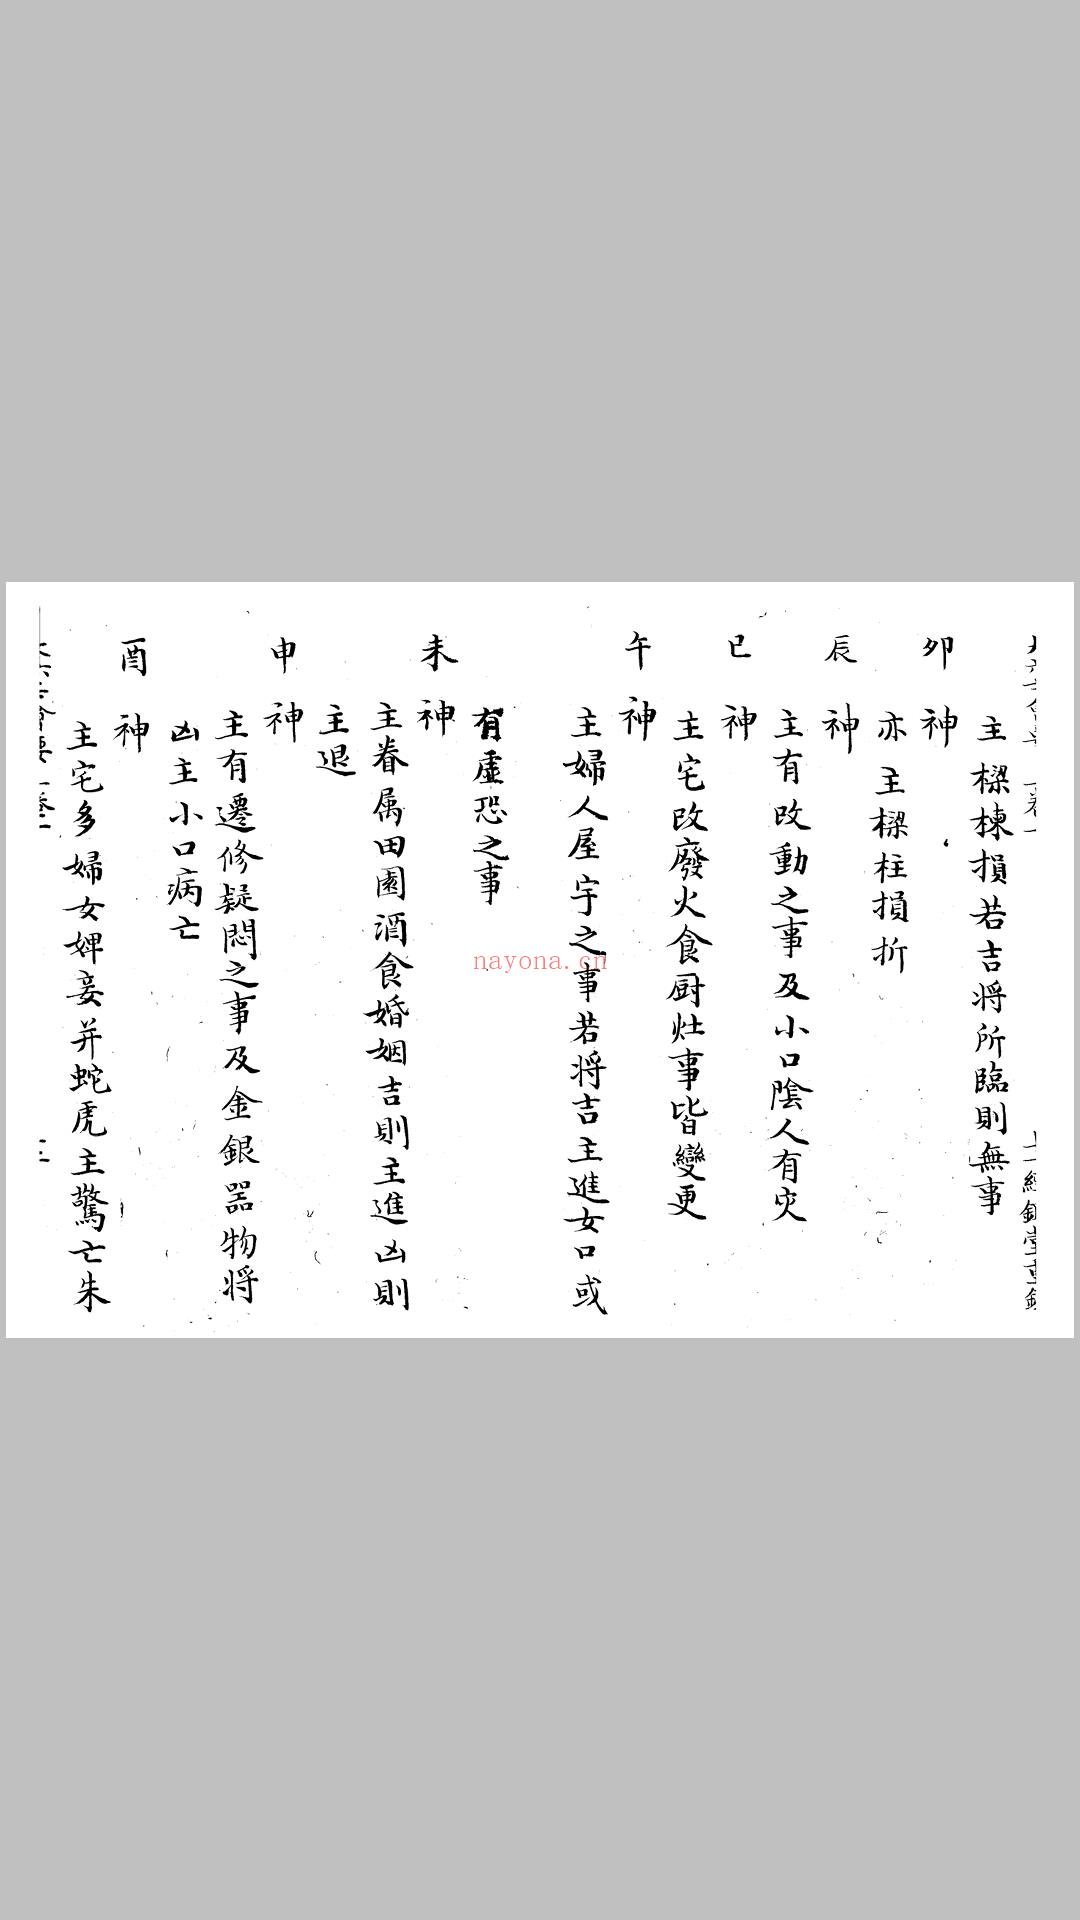 主樑棟損若吉将所臨則無事
卯神
亦主樑柱損折
辰神
主有改動之事及小口陰人有灾
巳神
主宅改廢火食厨灶事皆變更
午神
主婦人屋宇之事若将吉主進女口或
有虛恐之事
未神
主眷属田園酒食婚姻吉則主進凶則
主退
申神
主有遷修疑悶之事及金銀器物将
凶主小口病亡
酉神
主宅多婦女婢妾并蛇虎主驚亡朱
nayona.cn